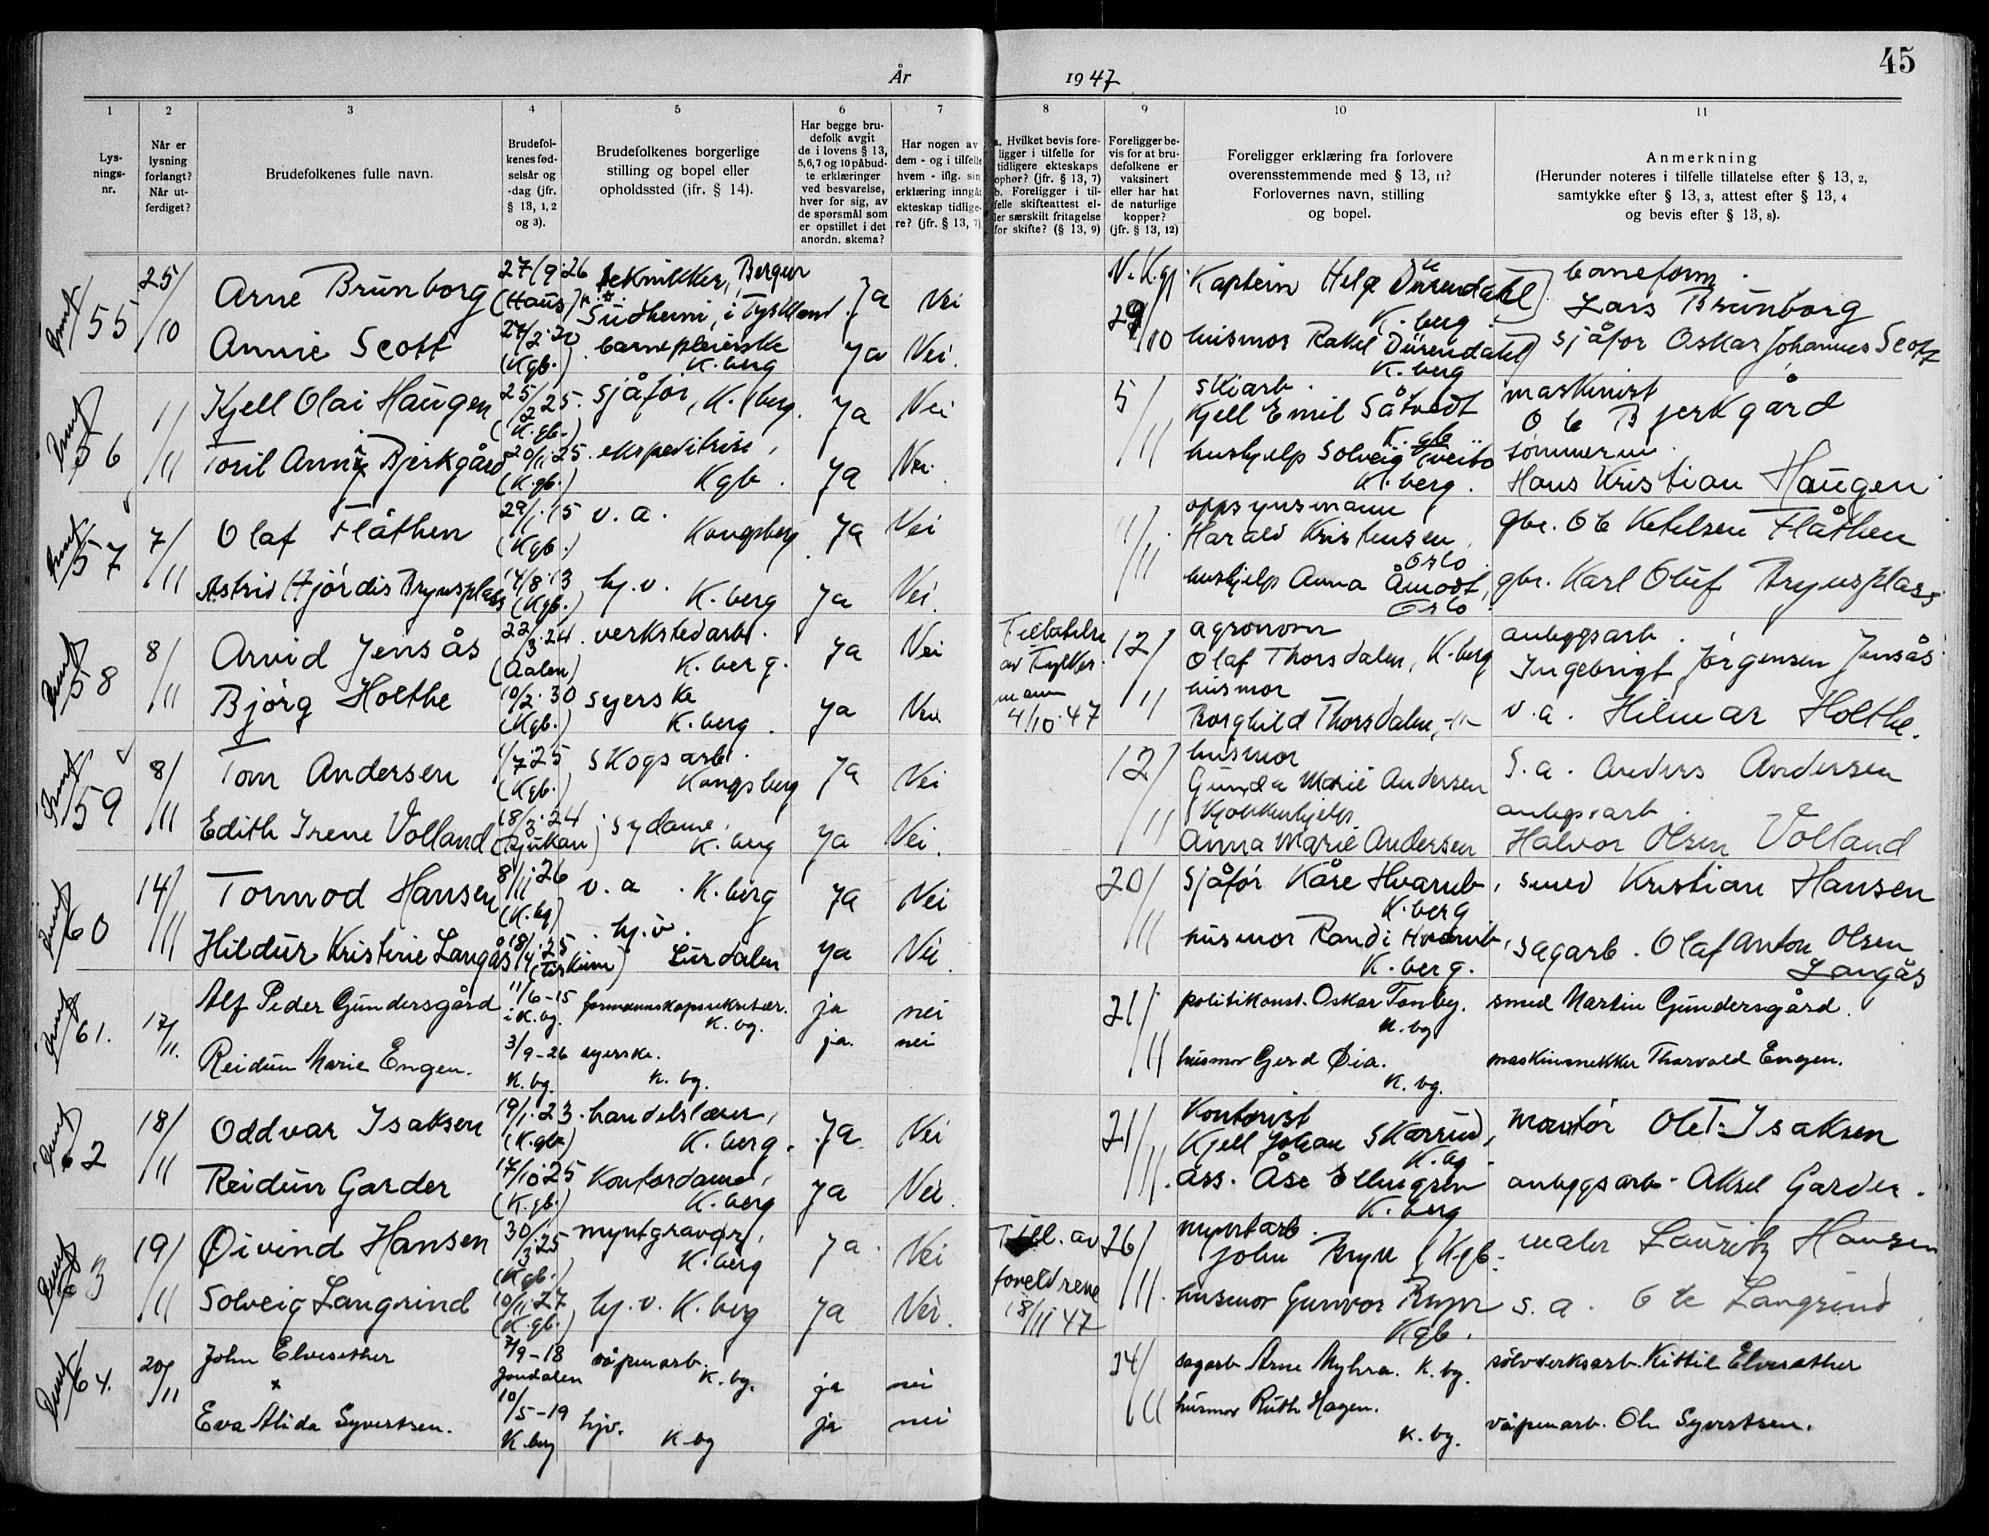 År 1947
45
1 2 3 4 5 6 7 8 9 10 11
Lys-
nings-
nr.
Når er
lysning
forlangt?
Når ut-
ferdiget?
Brudefolkenes fulle navn.
Brudefol-
kenes fød-
selsår og
-dag (jfr.
§ 13, 1, 2
og 3).
Brudefolkenes borgerlige
stilling og bopel eller
opholdssted (jfr. § 14).
Har begge bru-
defolk avgit
de i lovens § 13,
5, 6, 7 og 10 påbud-
te erklæringer
ved besvarelse,
hver for sig, av
de spørsmål som
er opstillet i det
anordn. skema?
Har nogen av
dem - og i tilfelle
hvem - iflg. sin
erklæring inngåt
ekteskap tidlige-
re? (jfr. § 13, 7)
a. Hvilket bevis fore-
ligger i tilfelle for
tidligere ekteskaps
ophør? (jfr. § 13, 7)
b. Foreligger i til-
felle skifteattest el-
ler særskilt fritagelse
for skifte? (§ 13, 9)
Foreligger be-
vis for at bru-
defolkene er
vaksinert
eller har hat
de naturlige
kopper?
(jfr. § 13, 12)
Foreligger erklæring fra forlovere
overensstemmende med § 13, 11?
Forlovernes navn, stilling
og bopel.
Anmerkning
(Herunder noteres i tilfelle tillatelse efter § 13, 2,
samtykke efter § 13, 3, attest efter § 13, 4
og bevis efter § 13, 8).
55 25/10 Arne Brunborg 27/9.26 (Haus) tekniker, Ja Nei
29/10 Kaptein Helge Dürendahl K.berg
Lars Brunborg
Annie Scott 27/2.20 (Kgb.) barnepleierske K.berg Ja Nei.
husmor Rakel Dürendahl K.berg
sjåfør Oskar Johannes Scott
56 1/11 Kjell Olai Haugen 25/2 25. (K.gb.) sjåfør, K.berg. Ja Nei
5/11 skiarb. Kjell Emil Såtvedt K.gb
maskinist O le Bjerkgård
Toril Anni Bjerkgård 20/11.25. (K.gb.) ekspeditrise, Kgb. Ja Nei.
hushjelp Solveig Tveito K.berg.
Hans Kristian Haugen
57 7/11 Olaf Flåthen 29/1.15 (Kgb.) v.a. Kongsberg Ja Nei
11/11 oppsynsmann Harald Kristensen Oslo.
gbr. Ole Ketilsen Flåthen
Astrid Hjørdis Brynsplass 14/8.13 (Kgb.) hj.v. K.berg Ja Nei.
hushjelp Anna Åmodt, Oslo.
gbr. Karl Oluf Brynsplass
58 8/11 Arvid Jensås 22/3.24 (Aalen) verkstedarb. K.berg. Ja Nei
Tillatelse av Fylkes-
mann
4/10.47
12/11 agronom Olaf Thorsdalen, K.berg
anleggsarb. Ingebrigt Jørgensen Jensås
Bjørg Holthe 10/2.30 (Kgb.) syerske K.berg. Ja Nei
husmor Borghild Thorsdalen, -"-
v.a. Hilmar Holthe.
59 8/11 Tom Andersen 1/7.25 (Kgb.) skogsarb. Kongsberg Ja Nei
12/11 husmor Gunda Marie Andersen
S.a. Anders Andersen
Edith Irene Volland 18/3.24 (Rjukan) sydame, K.berg Ja Nei.
Kjøkkenhjelp Anna Marie Andersen
anlegsarb. Halvor Olsen Volland
60 14/11 Tormod Hansen 8/11.26 (K.bg) v.a. K.berg Ja Nei
20/11 Sjåfør Kåre Hvarub, K.berg
smed Kristian Hansen
Hildur Kristine Langås 18/4.25 hj.v. Lurdalen Ja Nei.
husmor Randi Hvarub, K.berg.
sagarb. Olaf Anton Olsen Langås
61. 17/11. Alf Peder Gundersgård 11/6-15 i K.bg. formannskapssekretær. K.bg. ja nei
21/11 politikonst. Oskar Tomby. K.bg
smed Martin Gundersgård.
Reidun Marie Engen. 3/9-26 K.bg. syerske. K.bg. ja. nei
husmor Gerd Øia. K.bg.
maskinsnekker Thorvald Engen.
62 18/11 Oddvar Isaksen 19/1.23. (K.gb.) handelslærer, K.berg. Ja. Nei
21/11. Kontorist Kjell Johan Skarrud, K.bg.
montør Ole T. Isaksen
Reidun Garder 17/10.25 (K.gb.) Kontordame, K.berg Ja Nei.
ass. Åse Ellingsen K.berg
anleggsarb. Aksel Garder.
63 19/11 Øivind Hansen 30/3.25 (Kgb.) myntgravør, K.berg Ja. Nei
Till. av
foreldrene
18/11 47
26/11. myntarb. John Bryn, Kgb.
maler Lauritz Hansen
Solveig Langrind 10/11.27 (K.gb.) hj.v. K.berg Ja Nei.
husmor Gunvor Bryn Kgb.
s.a. Ole Langrind
64. 20/11 John Elvesether 7/9-18 Jondalen våpenarb. K.bg. ja nei
24/11 sagarb. Arne Myhra. K.bg.
sølvverksarb. Kittil Elvesæther
x
Eva Alida Syvertsen. 10/5-19 K.berg hjv. K.bg ja nei
husmor Ruth Hagen. K.bg.
våpenarb. Ole Syvertsen.